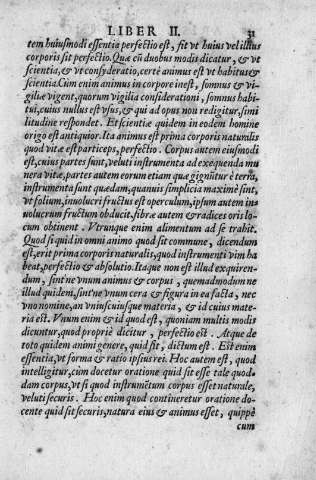 LIBER II. 31
tem huiusmodi essentia perfectio est, sit vt huius vel illius
corporis sit perfectio. Quæ cũ duobus modis dicatur, & vt
scientia, & vt consyderatio, certè animus est vt habitus &
scientia. Cùm enim animus in corpore inest, somnus & vi-
giliæ vigent, quorum vigilia considerationi, somnus habi-
tui, cuius nullus est vsus, & qui ad opus non redigitur, simi
litudine respondet. Et scientiæ quidem in eodem homine
origo est antiquior. Ita animus est prima corporis naturalis
quod vitæ est particeps, perfectio. Corpus autem eiusmodi
est, cuius partes sunt, veluti instrumenta ad exequenda mu
nera vitæ, partes autem eorum etiam quæ gignũtur è terra,
instrumenta sunt quædam, quanuis simplicia maximè sint,
vt folium, inuolucri fructus est operculum, ipsum autem in-
uolucrum fructum obducit, fibræ autem & radices oris lo-
cum obtinent. Vtrunque enim alimentum ad se trahit.
Quod si quid in omni animo quod sit commune, dicendum
est, erit prima corporis naturalis, quod instrumenti vim ha
beat, perfectio & absolutio. Itaque non est illud exquiren-
dum, sint ne vnum animus & corpus, quemadmodum ne
illud quidem, sint ne vnum cera & figura in ea facta, nec
vno nomine, an vniuscuiusque materia, & id cuius mate-
ria est. Vnum enim & id quod est, quoniam multis modis
dicuntur, quod propriè dicitur, perfectio est. Atque de
toto quidem animi genere, quid sit, dictum est. Est enim
essentia, vt forma & ratio ipsius rei. Hoc autem est, quod
intelligitur, cùm docetur oratione quid sit esse tale quod-
dam corpus, vt si quod instrumẽtum corpus esset naturale,
veluti securis. Hoc enim quod contineretur oratione do-
cente quid sit securis, natura eius & animus esset, quippe
cum